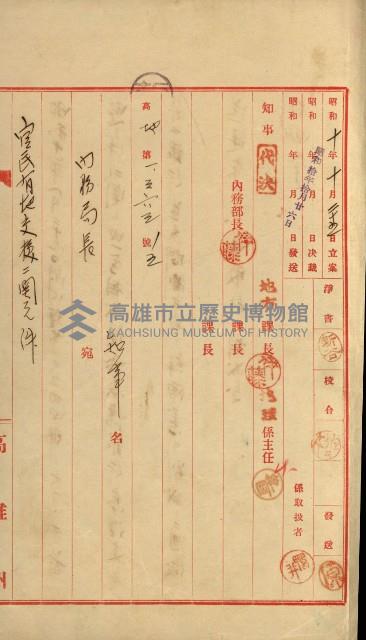 昭和十年十月廿五日立案 淨書 校合 發送
昭和 年 月 日決裁
昭和 年 月 日發送
昭和拾年拾月廿六日
係取扱者
知事 代決 地方課長 地理係主任
內務部長 課長
課長
高地第一三六三號ノ五
知事名
內務局長 宛
官民有地交換ニ關スル件
高雄州
高雄市立歷史博物館
KAOHSIUNG MUSEUM OF HISTORY